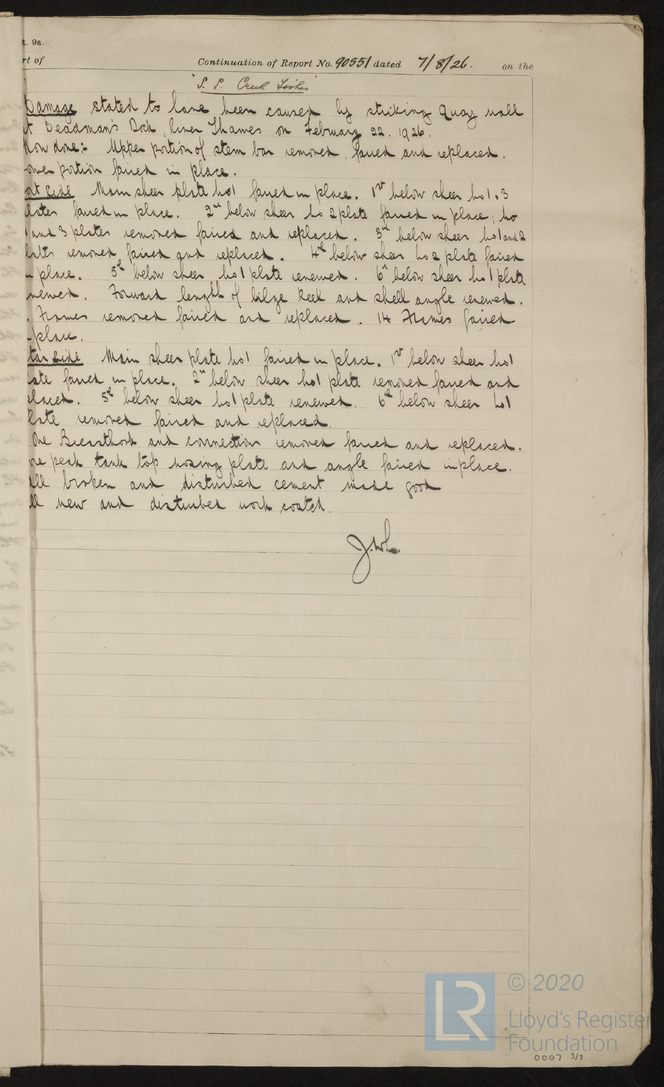 t. 9a.
rt of Continuation of Report No. 90551 dated 7/8/26. on the
"S. S. Creek
Damage stated to have been caused by striking Quay wall
t Deadman's Dock, River Thames on February 22. 1926.
Now done:- Upper portion of stem bar removed, faired and replaced.
ower portion faired in place.
ort Side Main sheer plate No1 faired in place. 1st below sheer No1.3
lates faired in place. 2nd below sheer No 2 plate faired in place; No
1 and 3 plates removed faired and replaced. 3rd below sheer No1 and 2
lates removed, faired and replaced. 4th below sheer No 2 plate faired
n place. 5th below sheer No1 plate renewed. 6th below sheer No1 plate
newed. Forward length of bilge keel and shell angle renewed.
Frames removed faired and replaced. 14 Frames faired
place.
tar Side Main sheer plate No1 faired in place. 1st below sheer No1
late faired in place. 2nd below sheer No1 plate removed faired and
placed. 5th below sheer No1 plate renewed. 6th below sheer No1
late removed faired and replaced.
One Breasthook and connection removed faired and replaced.
ore peak tank top nosing plate and angle faired in place.
all broken and disturbed cement made good
ll new and disturbed work coated.
J.W.L.
LR
© 2020
Lloyd's Register
Foundation
0007 3/3